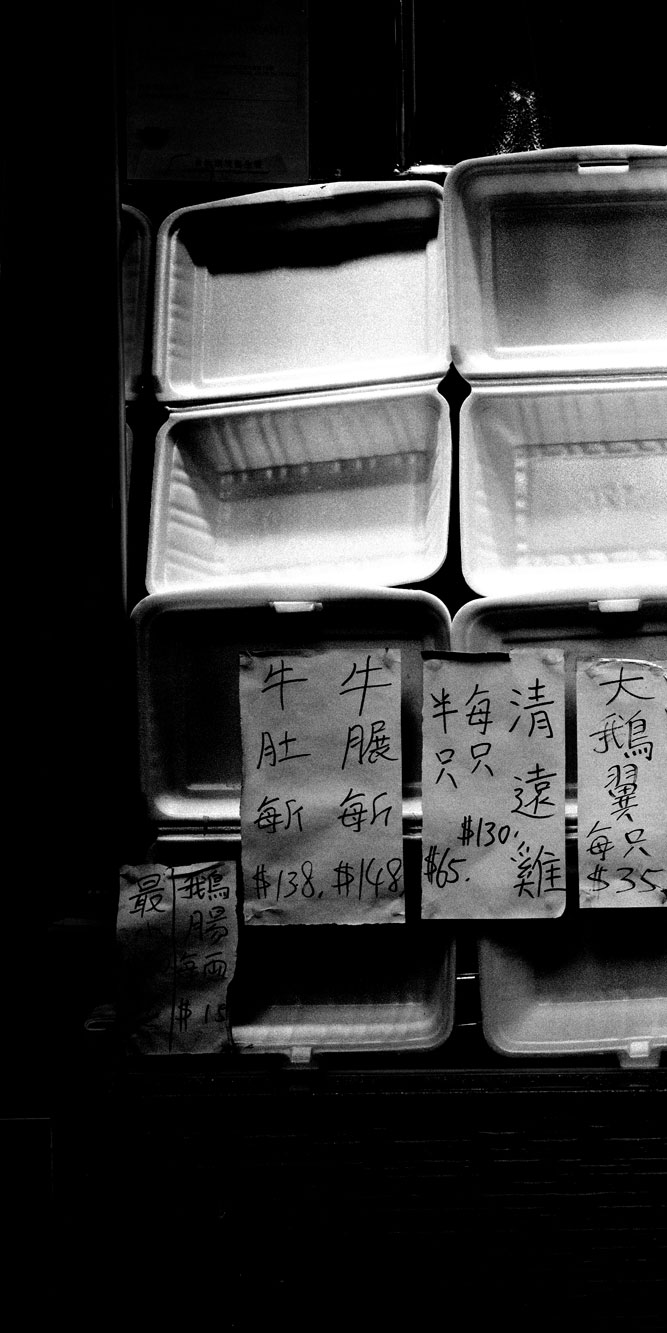 大鵝翼每只$35
清遠雞
每只$130
半只$65
牛𦟌每斤$148
牛肚每斤$138
鵝腸每両$15
最